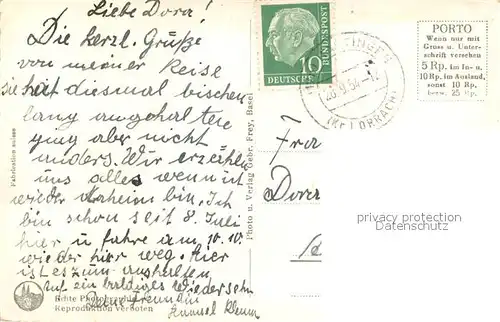 Liebe Dora!
Die herzl. Grüße
von meiner Reise
hat diesmal bischen
lang angehalten
ging aber nicht
anders. Wir erzählen
uns alles wenn ich
wieder daheim bin. Ich
bin schon seit 8. Juli
hier u fahre am 10.10.
wieder hier weg. Hier
ist es zum aushalten
auf ein baldiges Wiedersehn
Deine Freundin
Fabrication suisse
Echte Photographie
Reproduktion verboten
Photo u. Verlag Gebr. Frey, Basel
DEUTSCHE
BUNDESPOST
10
(Kr LÖRRACH)
PORTO
Wenn nur mit
Gruss u. Unter-
schrift versehen
5 Rp. im In- u.
10 Rp. im Ausland,
sonst 10 Rp.
bezw. 25 Rp.
privacy protection
Datenschutz